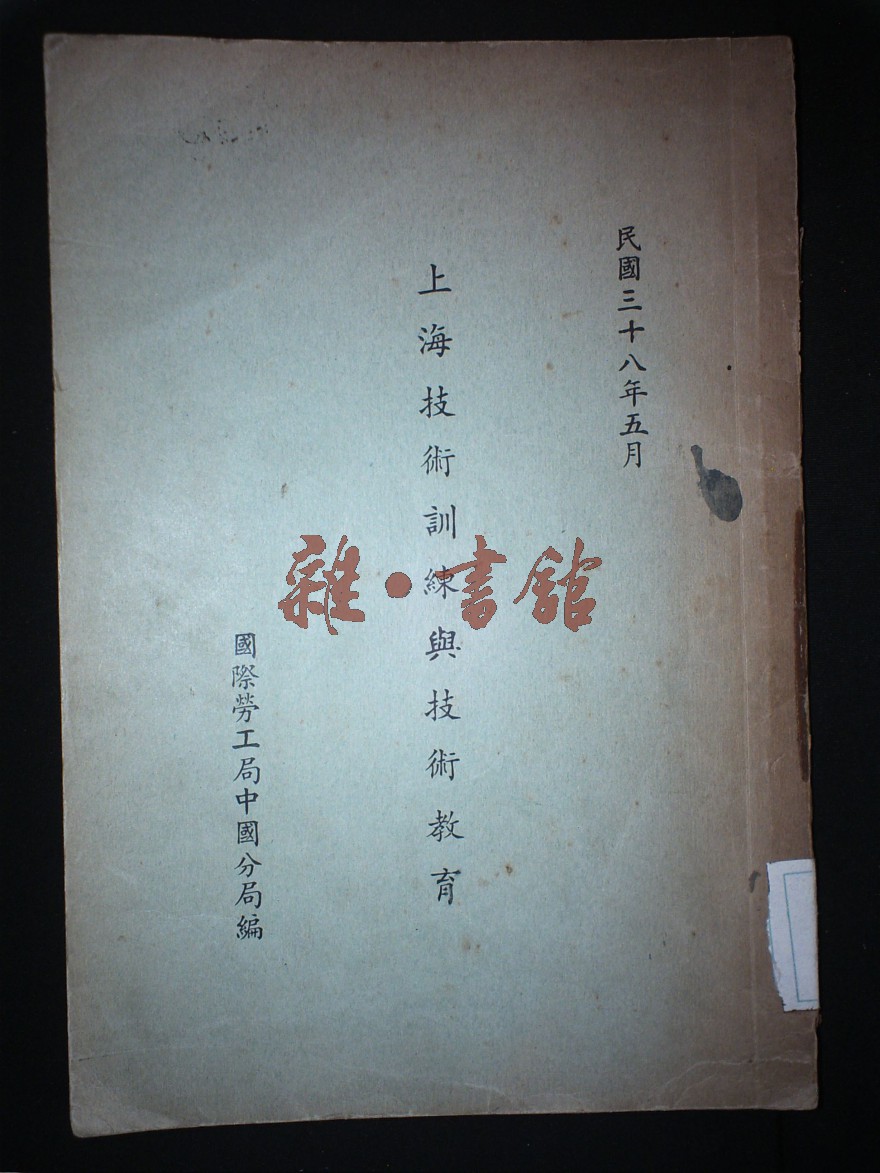 民國三十八年五月
上海技術訓練與技術教育
國際勞工局中國分局編
雜·書館